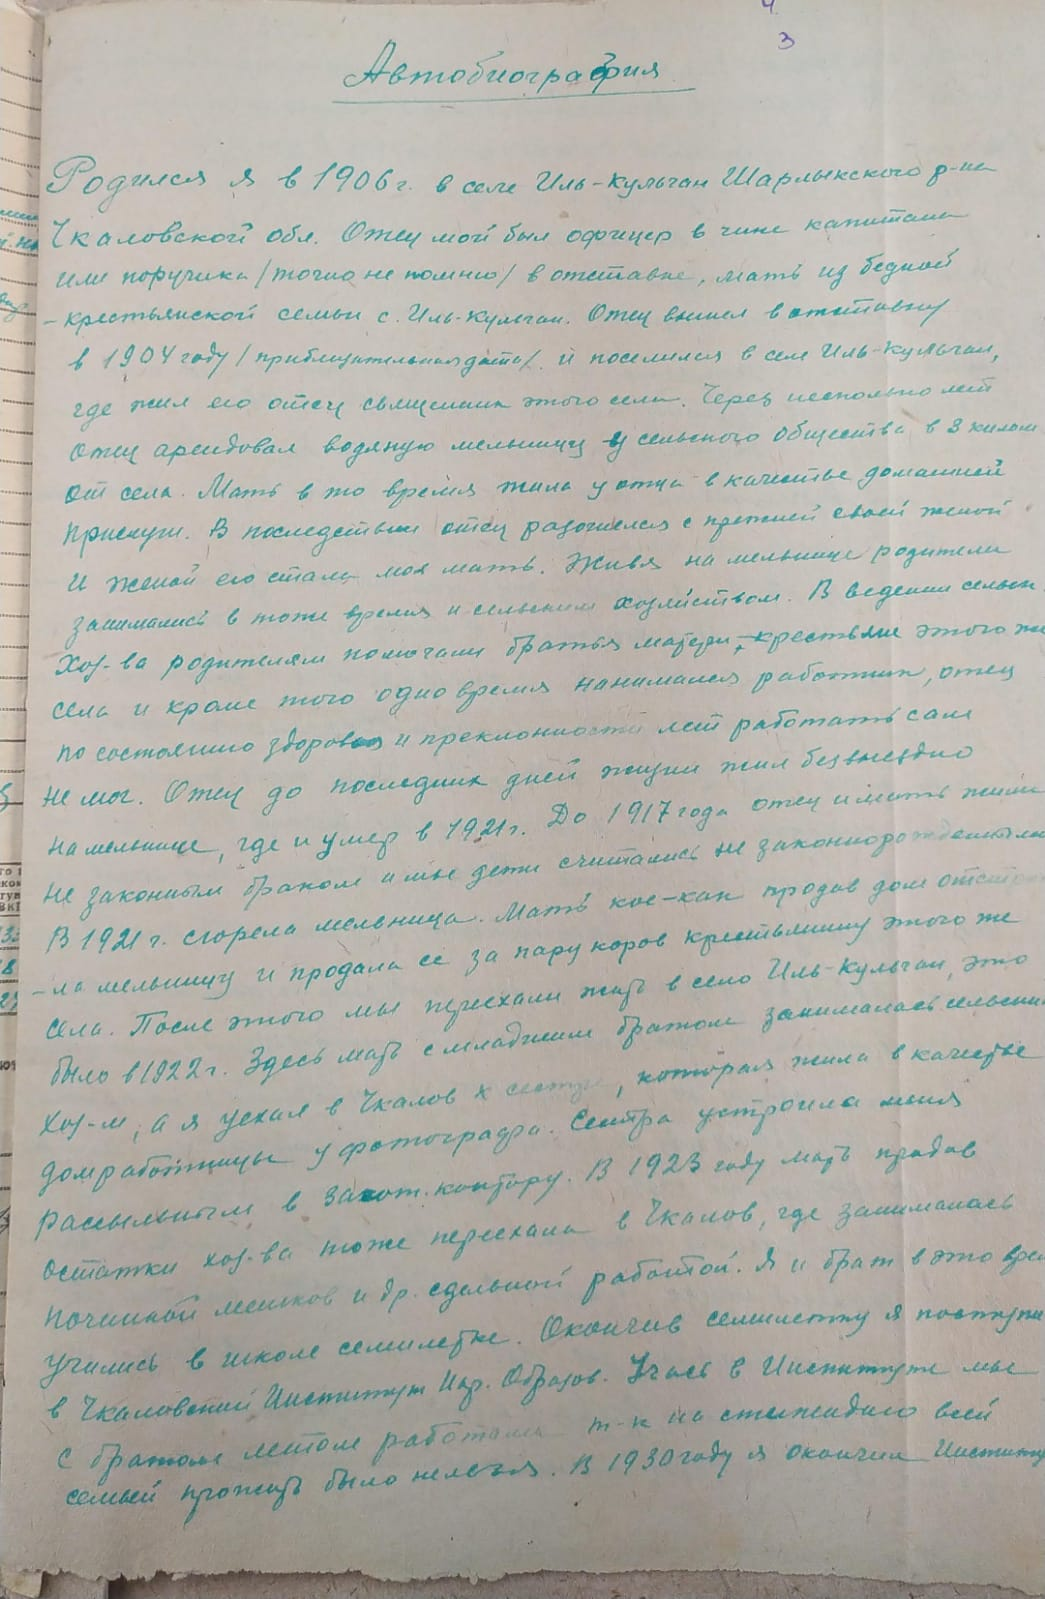 3
Автобиография
Родился я в 1906 г. в селе Иль-Кульган Шарлыкского р-на
Чкаловской обл. Отец мой был офицер в чине капитана
или поручика /точно не помню/ в отставке, мать из бедной
- крестьянской семьи с. Иль-Кульган. Отец вышел в отставку
в 1904 году /приблизительная дата/ и поселился в селе Иль-Кульган,
где жил его отец священник этого села. Через несколько лет
отец арендовал водяную мельницу у сельского общества в 3 килом
от села. Мать в то время жила у отца в качестве домашней
прислуги. В последствии отец разошелся с прежней своей женой
и женой его стала моя мать. Живя на мельнице родители
занимались в тоже время и сельским хозяйством. В ведении сельск.
хоз-ва родителям помогали братья матери, крестьяне этого же
села и кроме того одно время нанимался работник, отец
по состоянию здоровья и преклонности лет работать сам
не мог. Отец до последних дней жизни жил безвыездно
на мельнице, где и умер в 1921 г. До 1917 года отец и мать жили
не законным браком и мы дети считались не законнорожденными
В 1921 г. сгорела мельница. Мать кое-как продав дом отстрои
- ла мельницу и продала ее за пару коров крестьянину этого же
села. После этого мы переехали жить в село Иль-Кульган, это
было в 1922 г. Здесь мать с младшим братом занималась сельским
хоз-м, а я уехал в Чкалов к сестре, которая жила в качестве
домработницы у фотографа. Сестра устроила меня
рассыльным в загот. контору. В 1923 году мать продав
остатки хоз-ва тоже переехала в Чкалов, где занималась
починкой мешков и др. сдельной работой. Я и брат в это врем
учились в школе семилетке. Окончив семилетку я поступил
в Чкаловский Институт Нар. Образов. Учась в Институте мы
с братом летом работали т-к на стипендию всей
семьей прожить было нельзя. В 1930 году я окончил Институт